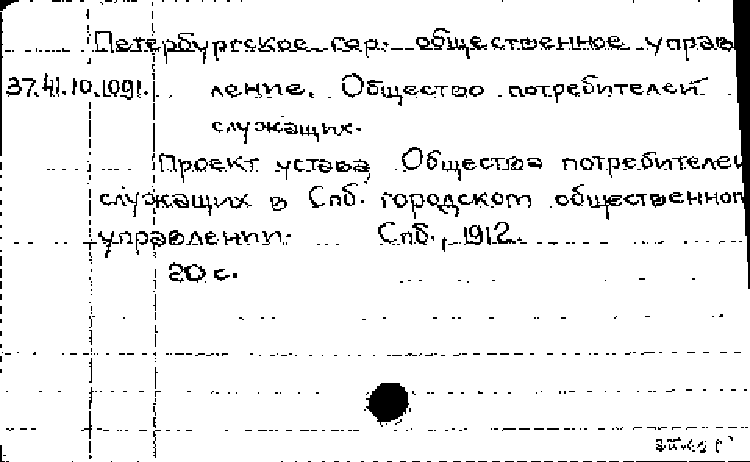 Петербургское гор. общественное управ
37.41.10.1091. ление. Общество потребителей
служащих.
Проект устава Общества потребителей
служащих в Спб. городском общественном
управлении. Спб., 1912.
20 с.